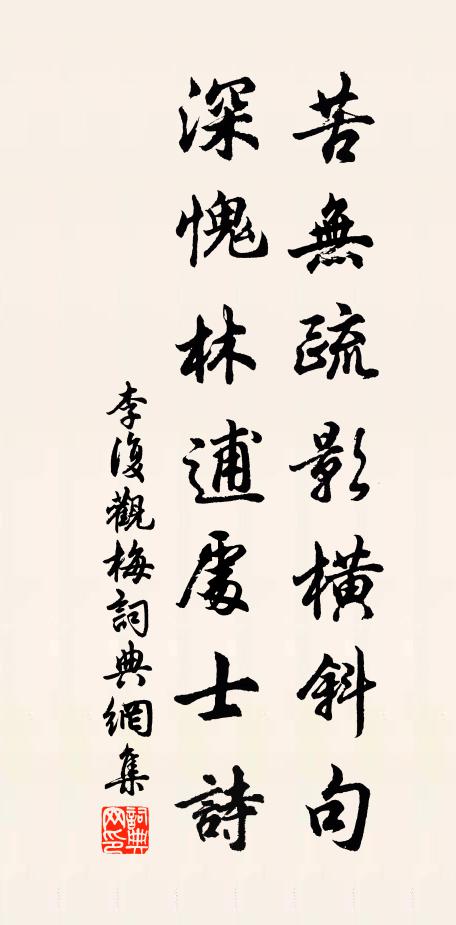 苦無疏影橫斜句
深愧林逋處士詩
李復觀梅詞典網集
詞典
网印